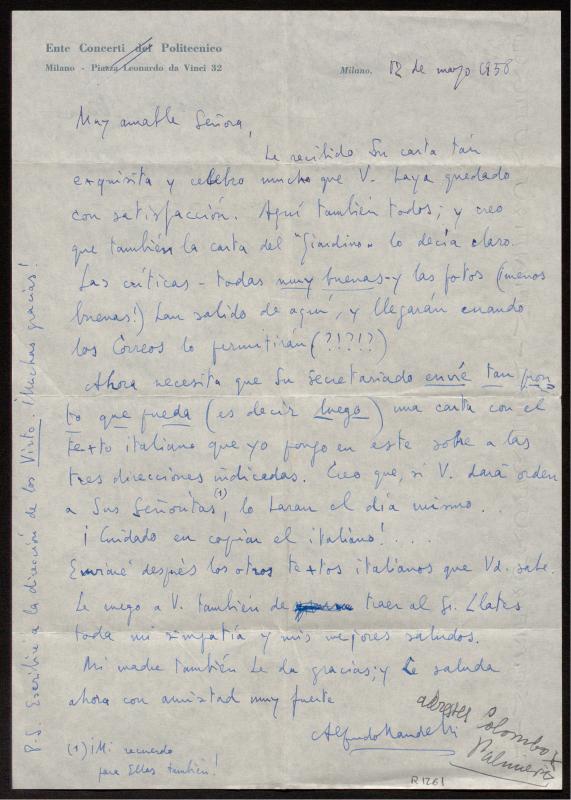 Ente Concerti del Politecnico
Milano - Piazza Leonardo da Vinci 32
Milano, 12 de mayo 1958
Muy amable Señora,
he recibido Su carta tan
exquisita y celebro mucho que V. haya quedado
con satisfacción. Aquí también todos; y creo
que también la carta del "Giardino" lo decía claro.
Las críticas - todas muy buenas - y las fotos (¡menos
buenas!) han salido de aquí, y llegarán cuando
los Correos lo permitirán (?!?!?)
Ahora necesita que Su Secretariado envíe tan pron
to que pueda (es decir luego) una carta con el
texto italiano que yo pongo en este sobre a las
tres direcciones indicadas. Creo que, si V. dará orden
a Sus Señoritas (1), lo haran el día mismo...
¡Cuidado en copiar el italiano!...
Enviaré después los otros textos italianos que Vd. sabe.
Le ruego a V. también de traer al Sr. Llates
toda mi simpatía y mis mejores saludos.
Mi madre también Le da gracias; y Le saluda
ahora con amistad muy fuerte
Alfredo Mandelli
(1) ¡Mi recuerdo
para Ellas también!
P.S. Escribiré a la dirección de los Virto. ¡Muchas gracias!
adreses Colombo x
Palmieri
R 1261